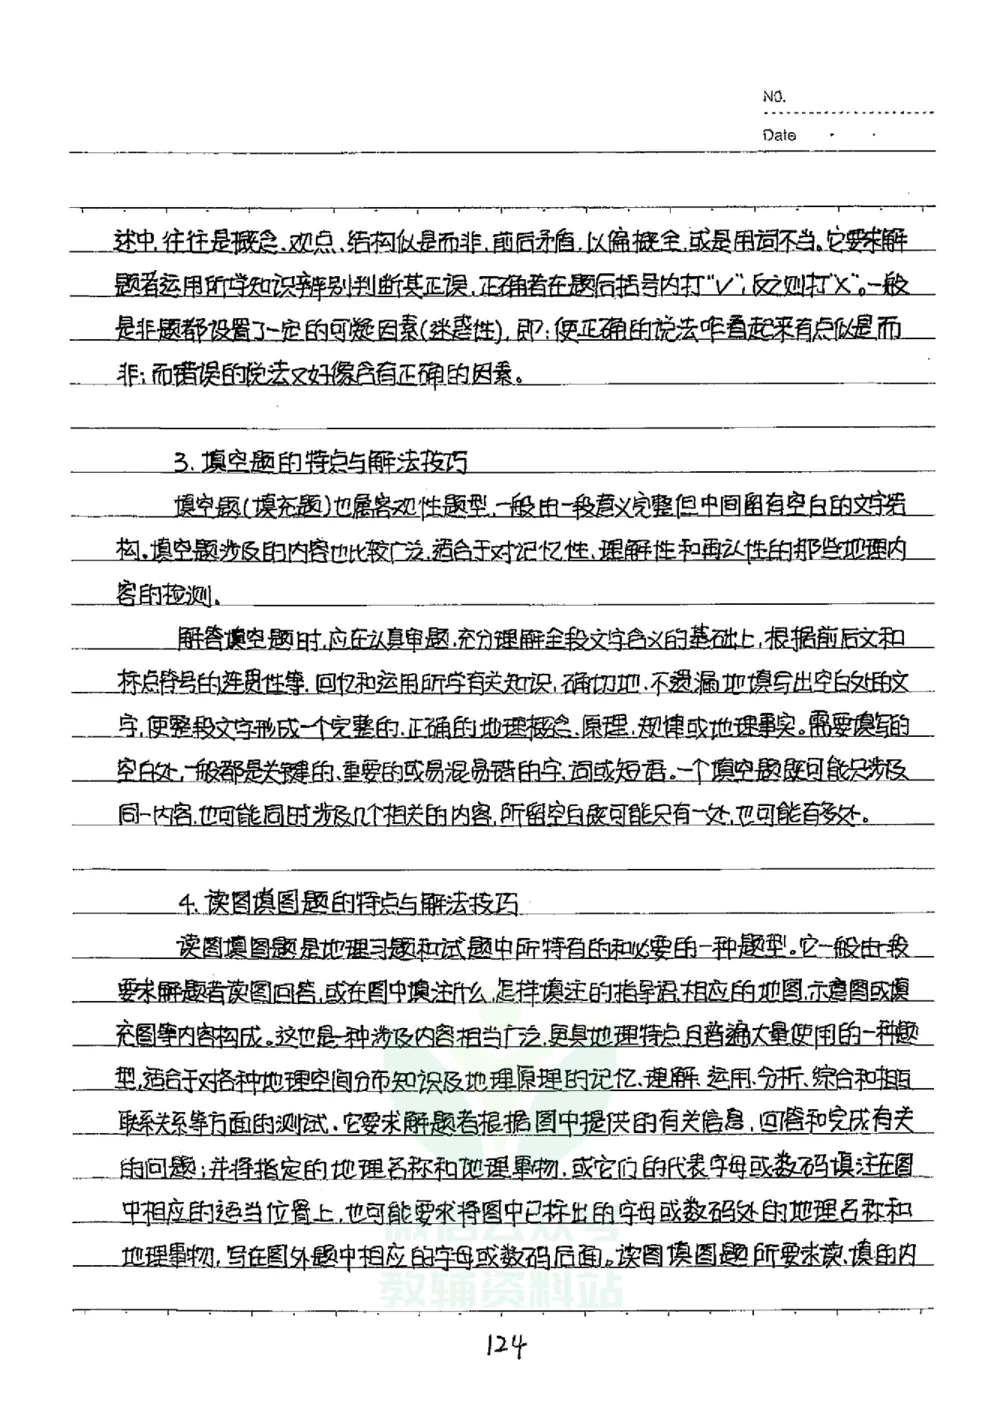 NO.
Date
述中,往往是概念、观点、结构似是而非,前后矛盾,以偏概全,或是用词不当。它要求解
题者运用所学知识辨别判断其正误,正确者在题后括号内打"√";反之则打"X"。一般
是非题都设置了一定的可疑因素(迷惑性),即:使正确的说法咋看起来有点似是而
非;而错误的说法又好像含有正确的因素。
3.填空题的特点与解法技巧
填空题(填充题)也属客观性题型,一般由一段意义完整但中间留有空白的文字结
构。填空题涉及的内容也比较广泛,适合于对记忆性、理解性和再认性的那些地理内
容的检测。
解答填空题时,应在认真审题,充分理解全段文字含义的基础上,根据前后文和
标点符号的连贯性等,回忆和运用所学有关知识,确切地、不遗漏地填写出空白处的文
字,使整段文字形成一个完整的、正确的地理概念、原理、规律或地理事实。需要填写的
空白处,一般都是关键的、重要的或易混易错的字、词或短语。一个填空题既可能只涉及
同一内容,也可能同时涉及几个相关的内容,所留空白既可能只有一处,也可能有多处。
4.读图填图题的特点与解法技巧
读图填图题是地理习题和试题中所特有的和必要的一种题型。它一般由一段
要求解题者读图回答,或在图中填注什么,怎样填注的指导语,相应的地图,示意图或填
充图等内容构成。这也是一种涉及内容相当广泛,更具地理特点且普遍大量使用的一种题
型,适合于对各种地理空间分布知识及地理原理的记忆、理解、运用、分析、综合和相互
联系关系等方面的测试。它要求解题者根据图中提供的有关信息,回答和完成有关
的问题;并将指定的地理名称和地理事物,或它们的代表字母或数码填注在图
中相应的适当位置上,也可能要求将图中已标出的字母或数码处的地理名称和
地理事物,写在图外题中相应的字母或数码后面。读图填图题所要求读、填的内
微信公众号
教辅资料站
124